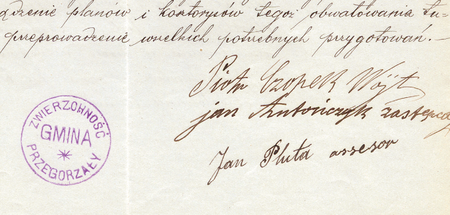 dzenie planów i kosztorysów tegoż obwałowania tu-
przeprowadzenie wszelkich potrzebnych przygotowań.—
Piotr Czopek Wójt
jan Antończyk zastępca
Jan Pluta assesor
ZWIERZCHNOŚĆ
GMINA
PRZEGORZAŁY